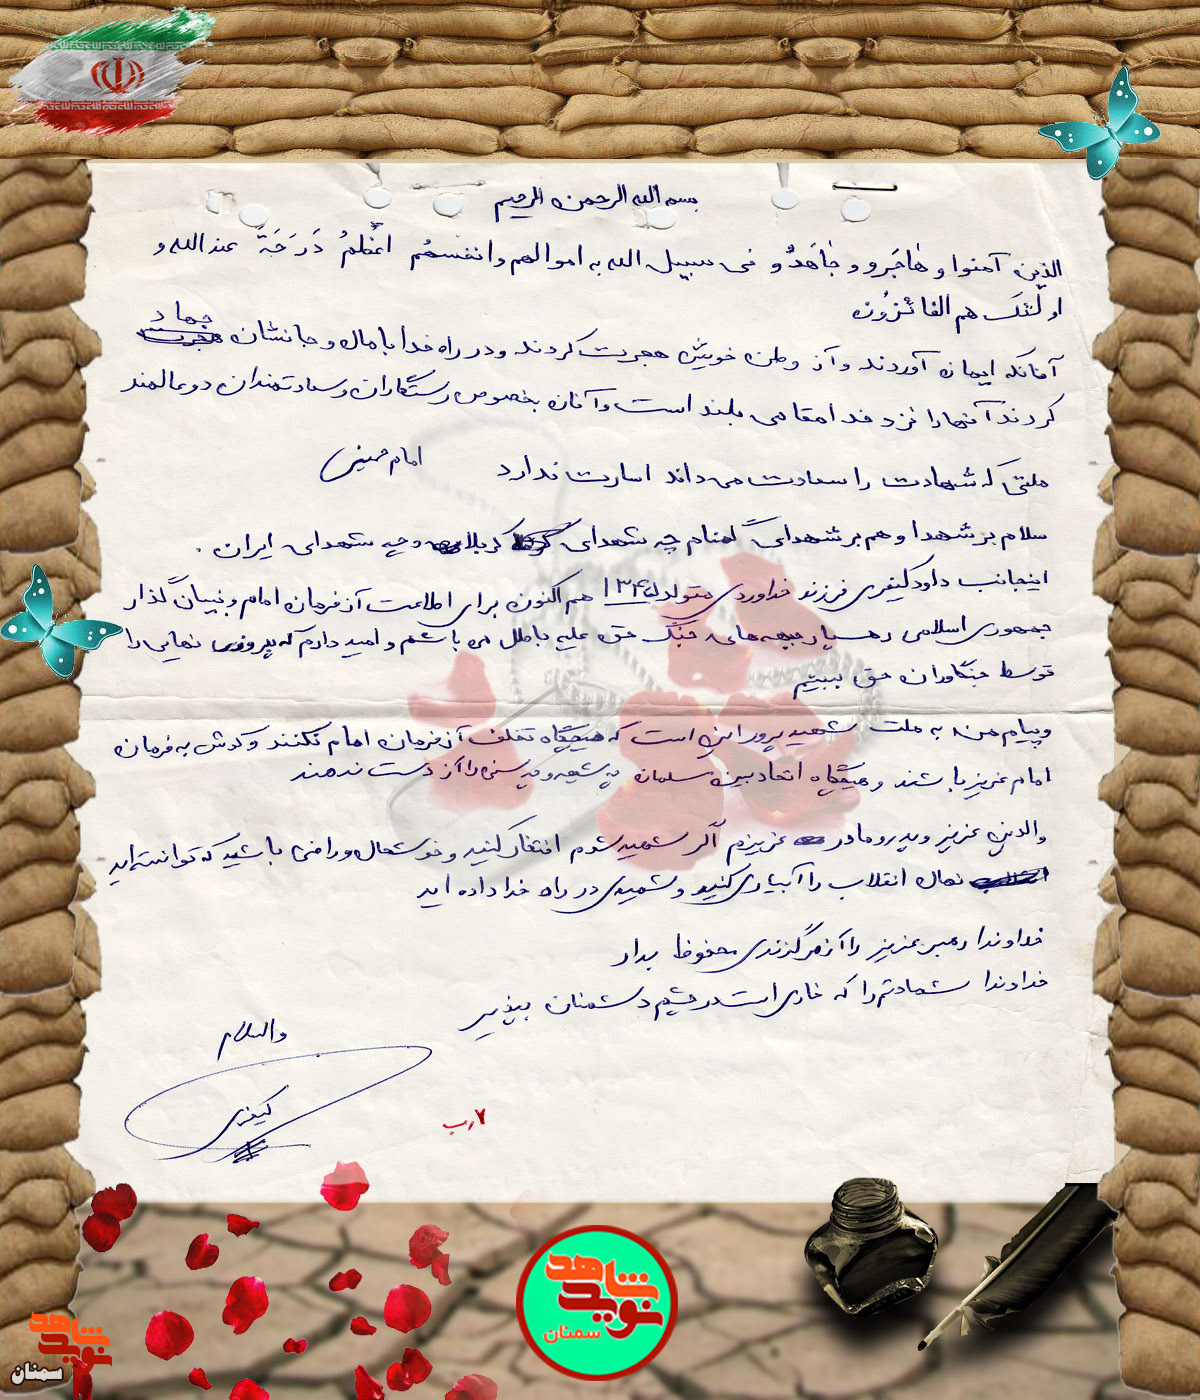 بسم الله الرحمن الرحیم
الذین آمنوا و هٰاجَرو و جٰاهَدُو فی سبیل الله به اموالهم وانفسهُم اعْظمُ دَرَجَةَ عندالله و
اولٰئک هم الفائزُون
آنانکه ایمان آوردند و از وطن خویش هجرت کردند و در راه خدا با مال و جانشان جهاد
کردند آنها را نزد خدا مقامی بلند است و آنان بخصوص رستگاران و سعادتمندان دو عالمند
ملتی که شهادت را سعادت می داند اسارت ندارد امام خمینی
سلام بر شهدا و هم بر شهدای گمنام چه شهدای کربلا و چه شهدای ایران .
اینجانب داود کیفری فرزند خداوردی متولد ۱۳۴۷ هم اکنون برای اطاعت از فرمان امام و بنیان گذار
جمهوری اسلامی رهسپار جبهه های جنگ حق علیه باطل می باشم و امید دارم که پیروزی نهایی را
توسط جنگاوران حق ببینم
و پیام من به ملت شهید پرور این است که هیچگاه تخلف از فرمان امام نکنند و گوش به فرمان
امام عزیز باشند و هیچگاه اتحاد بین مسلمان چه شیعه و چه سنی را از دست ندهند
والدین عزیز و پدر و مادر عزیزم اگر شهید شدم افتخار کنید و خوشحال و راضی باشید که توانسته اید
نهال انقلاب را آبیاری کنید و شهیدی در راه خدا داده اید
خداوندا رهبر عزیز را از هر گزندی محفوظ بدار
خداوندا شهادتم را که خاری است در چشم دشمنان بپذیر
والسلام
کیفری
شاهد
نوید
سمنان
شاهد
نوید
سمنان